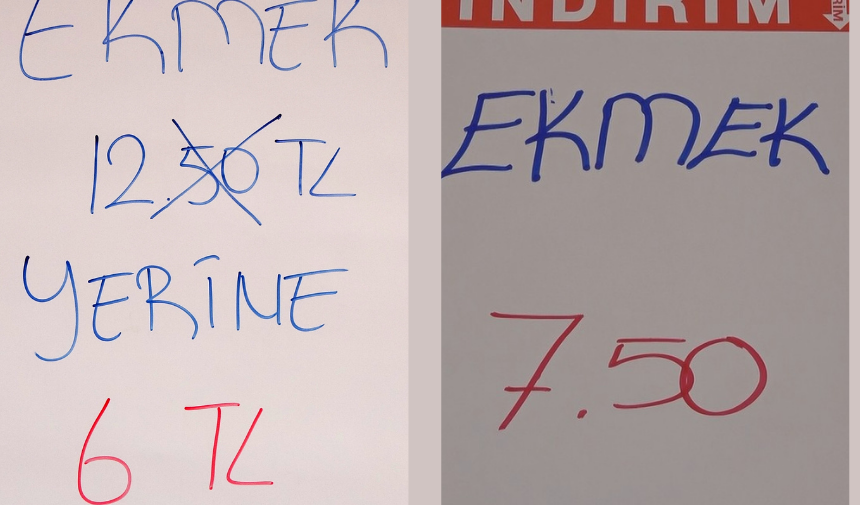 EKMEK
12.50 TL
YERİNE
6 TL
İNDİRİM
EKMEK
7.50